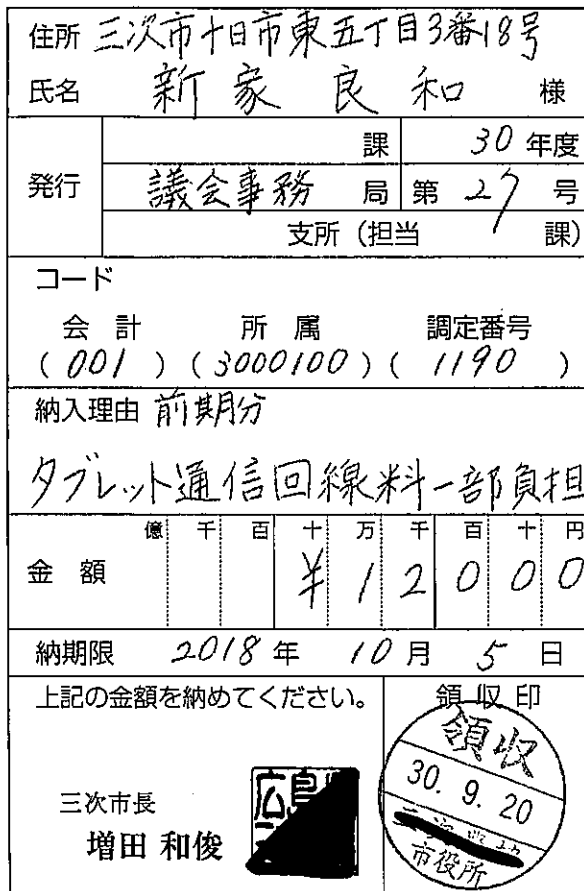 住所 三次市十日市東五丁目3番18号
氏名 新家良和 様
発行
課 30年度
議会事務局 第27号
支所(担当 課)
コード
会計 所属 調定番号
(001)(3000100)(1190)
納入理由 前期分
タブレット通信回線料一部負担
億 千 百 十 万 千 百 十 円
金額 ¥12000
納期限 2018年10月5日
上記の金額を納めてください。
領収印
三次市長
増田 和俊
広島
領収
30.9.20
市役所